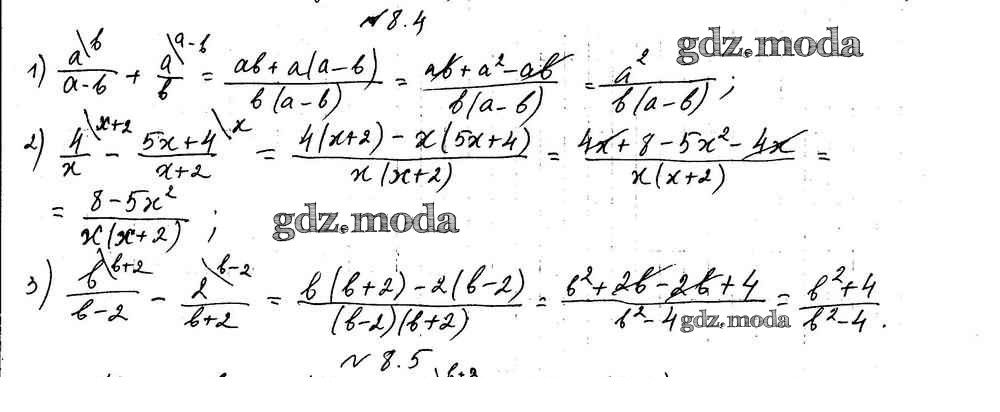 № 8.4
gdz.moda
1) a\b/(a-b) + a\a-b/b = (ab+a(a-b))/(b(a-b)) = (ab+a²-ab)/(b(a-b)) = a²/(b(a-b));
2) 4\x+2/x - (5x+4)\x/(x+2) = (4(x+2)-x(5x+4))/(x(x+2)) = (4x+8-5x²-4x)/(x(x+2)) =
= (8-5x²)/(x(x+2));
gdz.moda
3) b\b+2/(b-2) - 2\b-2/(b+2) = (b(b+2)-2(b-2))/((b-2)(b+2)) = (b²+2b-2b+4)/(b²-4) = (b²+4)/(b²-4).
gdz.moda
№ 8.5